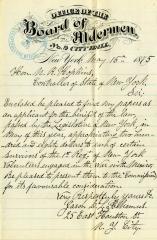 OFFICE OF THE
Board of Aldermen,
No. 8 CITY HALL,
New York May 15th 1875
Hon. N. K. Hopkins,
Comptroller of State of New York,
Sir:
Enclosed be pleased to find my papers as
an applicant for the benefit of the law,
passed in the Legislature of New York, in
May of this year, appropriating two hun-
dred and eight dollars to each of certain
survivors of the 1st Regt of New York
Volunteers, engaged in the war with Mexico.
Be pleased to present them to the Commission
for its favourable consideration.
Very Respectfully yours &c
25 East Houston St
N. Y. City